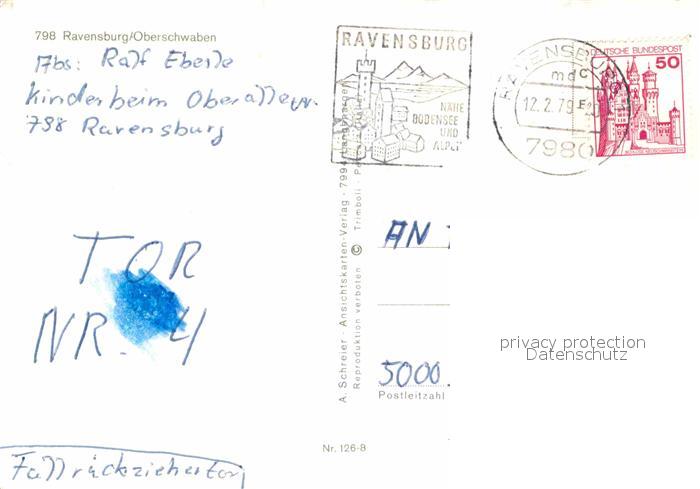 798 Ravensburg/Oberschwaben
Abs: Ralf Eberle
Kinderheim
798 Ravensburg
TOR
NR. 4
Fallrückziehertor
RAVENSBURG
NAHE
BODENSEE
UND
ALPEN
RAVENSBURG
mdc
12.2.79
7980
DEUTSCHE BUNDESPOST
50
A. Schreier · Ansichtskarten-Verlag · 7994 Langenargen
Reproduktion verboten © Trimboli
AN
5000
Postleitzahl
privacy protection
Datenschutz
Nr. 126-8